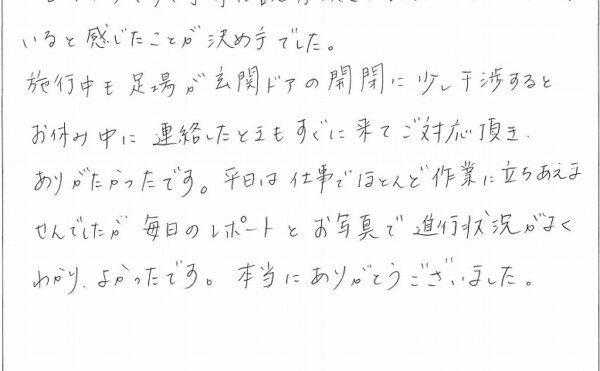 いると感じたことが決め手でした。
施行中も足場が玄関ドアの開閉に少し干渉すると
お休み中に連絡したときもすぐに来てご対応頂き、
ありがたかったです。平日は仕事でほとんど作業に立ちあえま
せんでしたが毎日のレポートとお写真で進行状況がよく
わかり、よかったです。本当にありがとうございました。